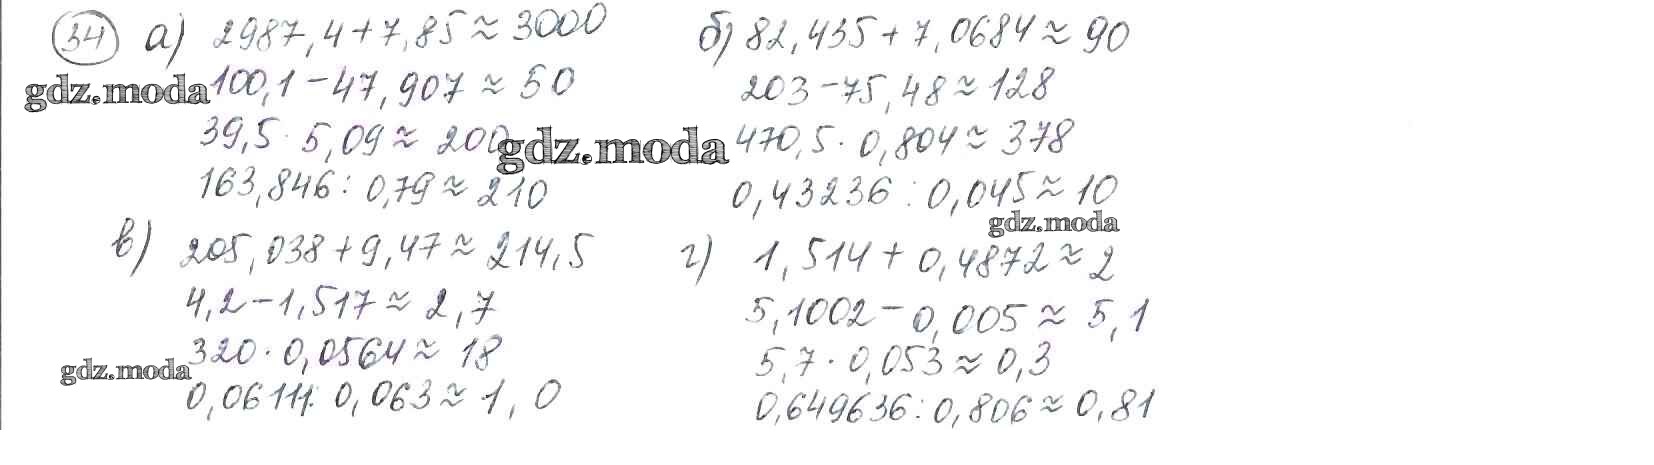 34 а) 2987,4+7,85≈3000
100,1-47,907≈50
39,5·5,09≈200
163,846:0,79≈210
б) 82,435+7,0684≈90
203-75,48≈128
470,5·0,804≈378
0,43236:0,045≈10
в) 205,038+9,47≈214,5
4,2-1,517≈2,7
320·0,0564≈18
0,06111:0,063≈1,0
г) 1,514+0,4872≈2
5,1002-0,005≈5,1
5,7·0,053≈0,3
0,649636:0,806≈0,81
gdz.moda
gdz.moda
gdz.moda
gdz.moda